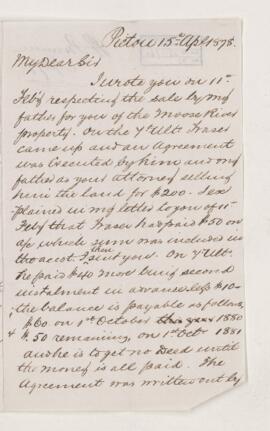 Pictou 15th Apl 1878.
My Dear Sir
I wrote you on 11th
Feby respecting the sale by my
father for you of the Moose River
property. On the 7th Ult. Fraser
came up and an Agreement
was Executed by him and my
father as your Attorney selling
him the land for $200. I ex
plained in my letter to you of 11th
Feby that Fraser had paid $50 on
a/c which sum was included in
the acct. I then sent you. On 7th Ult.
he paid $40 more being second
instalment in advance less $10 -
the balance is payable as follows,
$60 on 1st October this year 1880
& $50 remaining, on 1st Oct 1881
and he is to get no Deed until
the money is all paid. The
Agreement was written out by